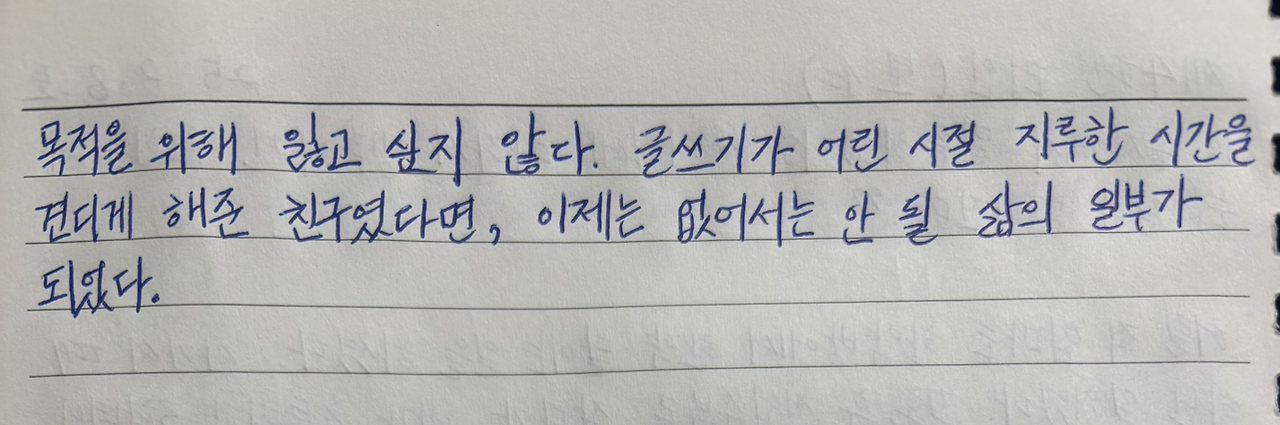 목적을 위해 잃고 싶지 않다. 글쓰기가 어린 시절 지루한 시간을
견디게 해준 친구였다면, 이제는 없어서는 안 될 삶의 일부가
되었다.